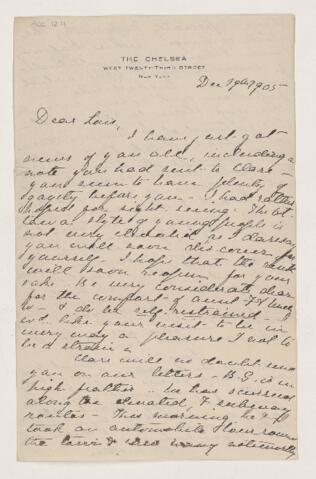 Acc. 12 11
THE CHELSEA
WEST TWENTY-THIRD STREET
NEW YORK
Dec 19th 1905
Dear Lois,
I have just got
news of you all, including a
note you had sent to Clare -
you seem to have plenty of
gayety before you - I had rather
hoped for sight seeing. The
of young people is
not very as I daresay
you will soon discover for
yourself - I hope that the
will soon reopen for your
sake. Be very considerate, dear
for the comfort of aunt F &
- I do be self-restrained - I
w'd like your visit to be in
every way a pleasure & not to
be a strain
Clare will no doubt send
you on our letters - B.G. is in
high feather - He has
along the elevated, & subway
routes - This morning he & I
took an automobile
the town & saw many